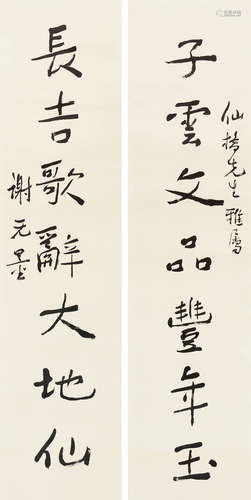 仙先生雅屬
子雲文品豐年玉
長吉歌辭大地仙
謝无量